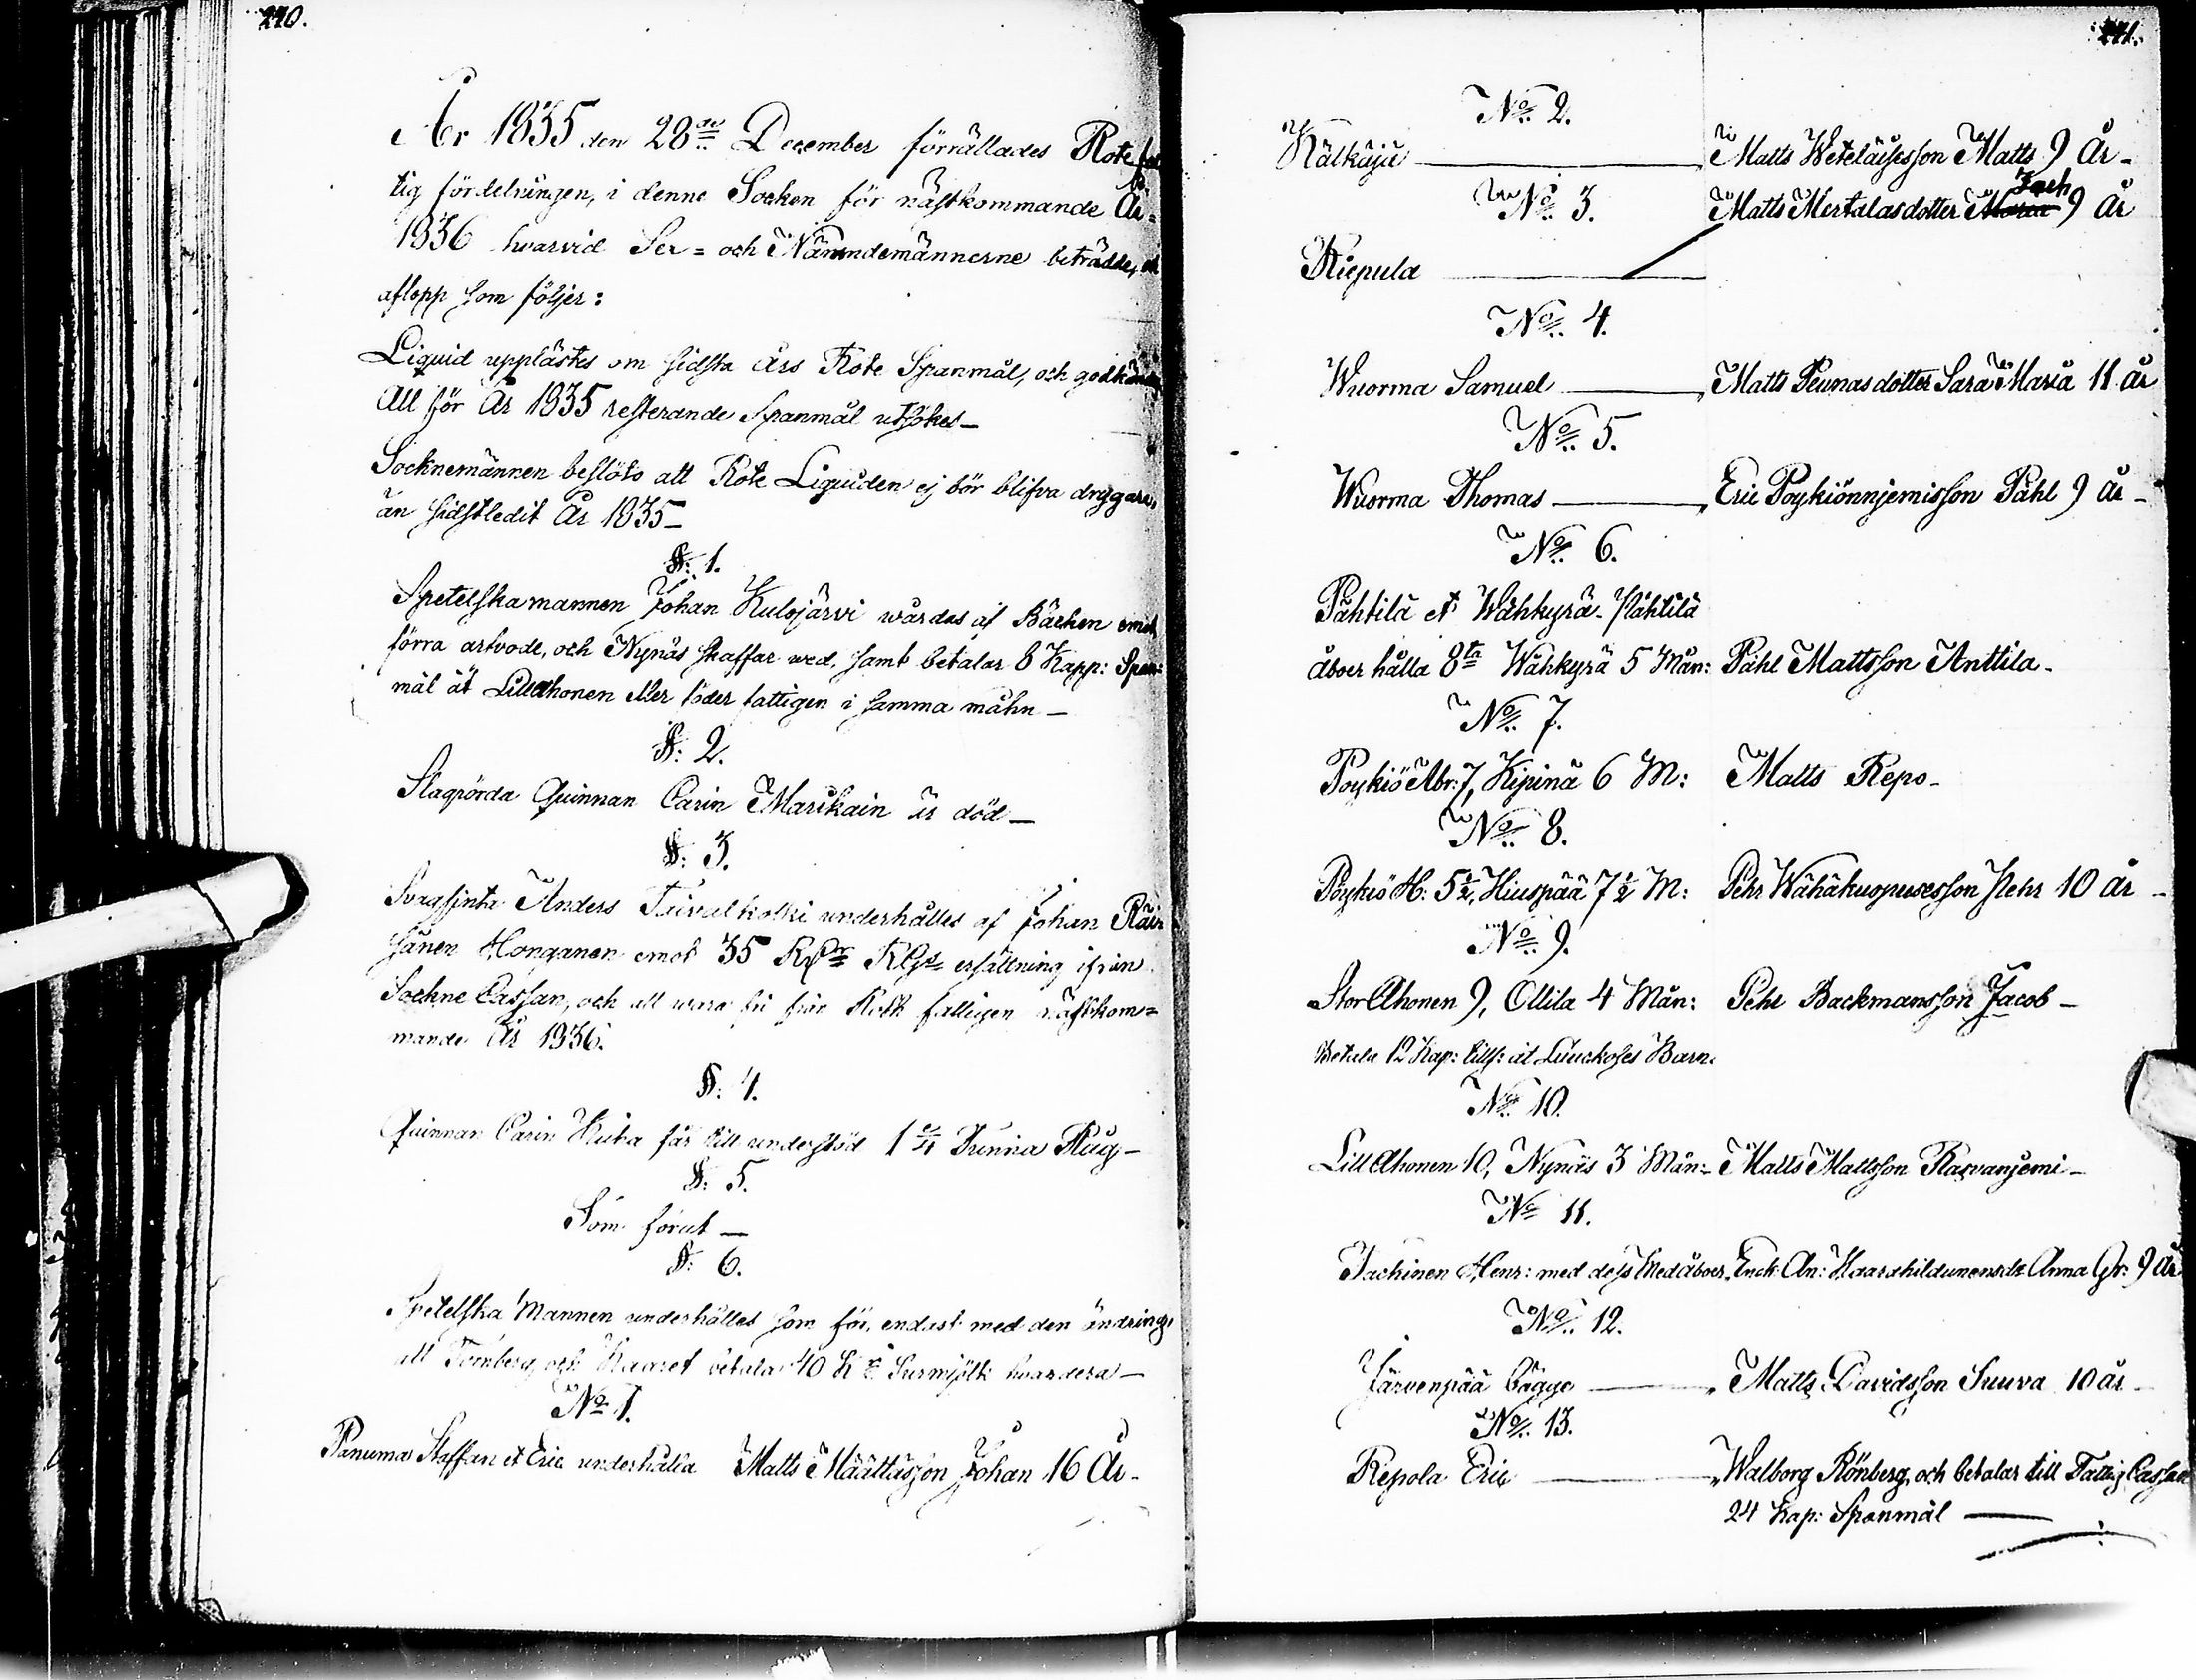 240.
År 1835 den 28de December förrättades Rote fat
tig fördelningen, i denne Socken för nästkommande År
1836 hvarvid Sex= och Nämndemännerne beträdde, och
aflopp som följer:
Liquid upplästes om sidsta års Rote Spanmål, och godkändes
All för År 1835 resterande Spanmål utsökes—
Socknemännen beslöto att Rote Liquiden ej bör blifva drygare,
än sidstledit År 1835—
§: 1.
Spetelska mannen Johan Kulojärvi wårdas af Bäcken emot
förra arfvode, och Nynäs skaffar wed, samt betalar 8 Kapp: Span:
mål åt LillAhonen eller föder fattigen i samma måhn—
§: 2.
Slagrörda Quinnan Carin Marikain är död—
§: 3.
Svagsinta Anders Taivalkoski underhålles af Johan
Honganen emot 35 RGs ersättning ifrån
Sockne Cassan, och att wara fri från Rote fattigen nästkom=
mande År 1836.
§: 4.
Quinnan Carin Huita får till understöd 1 Tunna Råg—
§: 5.
Som förut—
§: 6.
Spetelska Mannen underhålles som för, endast med den ändring,
att Törnberg och Kaaret betala 40 Surmjölk hvardera—
No 1.
Panuma Staffan et Eric underhålla Matts Määttässon Johan 16 År-
241.
No. 2.
Kälkäjä Matts Weteläisesson Matts 9 År-
No. 3. Matts Mertalasdotter Maria Zach 9 År
Riepula
No. 4.
Wuorma Samuel Matts Peunasdotter Sara Maria 11 år
No. 5.
Wuorma Thomas Eric Poykiönnjemisson Påhl 9 År-
No. 6.
Påhtila et Wähkyrä- Påhtila
åboer hålla 8ta Wähkyrä 5 Mån: Påhl Mattsson Anttila-
No. 7.
Poykiö Abr: 7, Kipinä 6 M: Matts Repo-
No. 8.
Poykiö H: 5½, Hiuspää 7½ M: Pehr Wähäkuopusesson Pehr 10 år-
No. 9.
StorAhonen 9, Ollila 4 Mån: Pehr Backmansson Jacob-
Betala 12 Kap: tills: åt Luuckoses Barn.
No. 10.
LillAhonen 10, Nynäs 3 Mån:- Matts Mattsson Karvanjemi-
No 11.
Jackinen Henr: med dess Medåboer. Enck: An: Haarahildunensdr Anna Gr: 9 År
No. 12.
Järvenpää bägge Matts Davidsson Suuva 10 år-
No. 13.
Repola Eric Walborg Rönberg, och betalar till Fattig Cassan
24 Kap: Spanmål